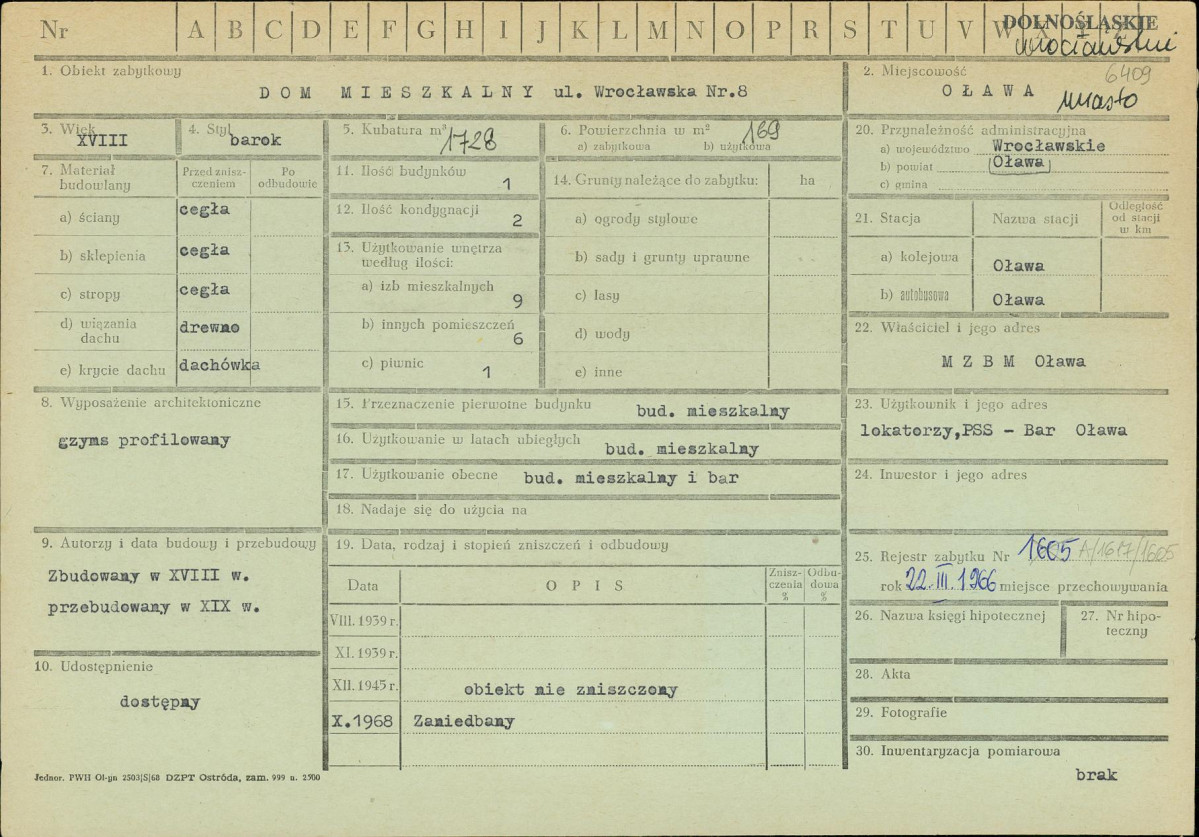 Nr A B C D E F G H I J K L M N O P R S T U V W X Y Z DOLNOŚLĄSKIE
wrocławski
1. Obiekt zabytkowy
DOM MIESZKALNY ul. Wrocławska Nr.8
2. Miejscowość 6409
OŁAWA miasto
3. Wiek
XVIII
4. Styl
barok
5. Kubatura m³
1728
6. Powierzchnia w m² 169
a) zabytkowa b) użytkowa
20. Przynależność administracyjna
a) województwo Wrocławskie
b) powiat Oława
c) gmina
7. Materiał budowlany
Przed zniszczeniem
Po odbudowie
a) ściany cegła
b) sklepienia cegła
c) stropy cegła
d) wiązania dachu drewno
e) krycie dachu dachówka
11. Ilość budynków 1
12. Ilość kondygnacji 2
13. Użytkowanie wnętrza
według ilości:
a) izb mieszkalnych 9
b) innych pomieszczeń 6
c) piwnic 1
14. Grunty należące do zabytku: ha
a) ogrody stylowe
b) sady i grunty uprawne
c) lasy
d) wody
e) inne
21. Stacja Nazwa stacji Odległość od stacji w km
a) kolejowa Oława
b) autobusowa Oława
22. Właściciel i jego adres
M Z B M Oława
8. Wyposażenie architektoniczne
gzyms profilowany
15. Przeznaczenie pierwotne budynku bud. mieszkalny
16. Użytkowanie w latach ubiegłych bud. mieszkalny
17. Użytkowanie obecne bud. mieszkalny i bar
18. Nadaje się do użycia na
23. Użytkownik i jego adres
lokatorzy,PSS - Bar Oława
24. Inwestor i jego adres
9. Autorzy i data budowy i przebudowy
Zbudowany w XVIII w.
przebudowany w XIX w.
10. Udostępnienie
dostępny
19. Data, rodzaj i stopień zniszczeń i odbudowy
Data OPIS Zniszczenia % Odbudowa %
VIII. 1939 r.
XI. 1939 r.
XII. 1945 r. obiekt nie zniszczony
X.1968 Zaniedbany
25. Rejestr zabytku Nr 1605 A/1617/1605
rok 22.III.1966 miejsce przechowywania
26. Nazwa księgi hipotecznej
27. Nr hipoteczny
28. Akta
29. Fotografie
30. Inwentaryzacja pomiarowa
brak
Jednor. PWH Ol-yn 2503|S|68 DZPT Ostróda, zam. 999 n. 2500